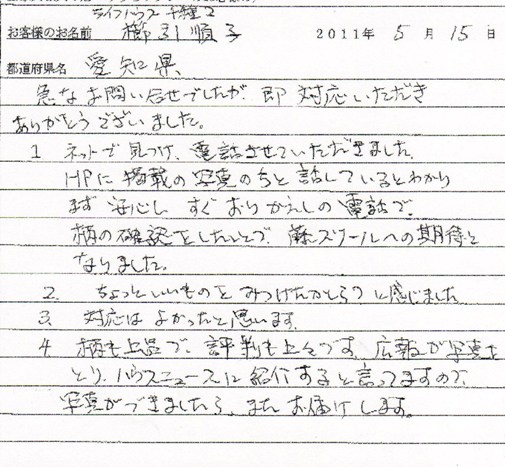 ライフハウス 千種2
お客様のお名前 櫛引順子 2011年 5月 15日
都道府県名 愛知県
急なお問い合せでしたが、即対応いただき
ありがとうございました。
1 ネットで見つけ、電話させていただきました。
HPに掲載の写真の と話しているとわかり
まず安心し すぐおりかえしの電話で、
柄の確認をしたいとで、藤スクールへの期待と
なりました。
2. ちょっといいものをみつけたかしら?と感じました
3. 対応はよかったと思います。
4. 柄も上品で、評判も上々です。広報が写真を
とり、ハウスニュースに紹介すると言ってますので、
写真ができましたら、またお届けします。